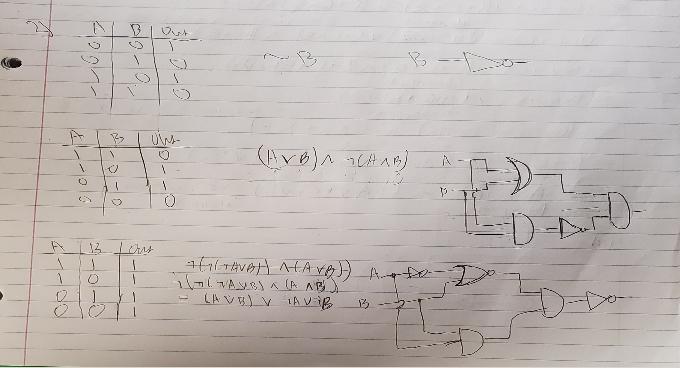 2)
A B Out
0 0 1
0 1 0
1 0 1
1 1 0
~ B
B
A B Out
1 1 0
1 0 1
0 1 1
0 0 0
(A ∨ B) ∧ ¬(A ∧ B)
A
B
A B Out
1 1 1
1 0 1
0 1 1
0 0 1
¬(¬(¬A ∨ B)) ∧ (A ∨ B))
¬(¬(¬A ∨ B) ∧ (A ∧ B))
(A ∨ B) ∨ ¬A ∨ ¬B
A
B